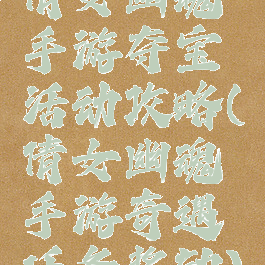 倩女幽魂
手游夺宝
活动攻略(
倩女幽魂
手游奇遇